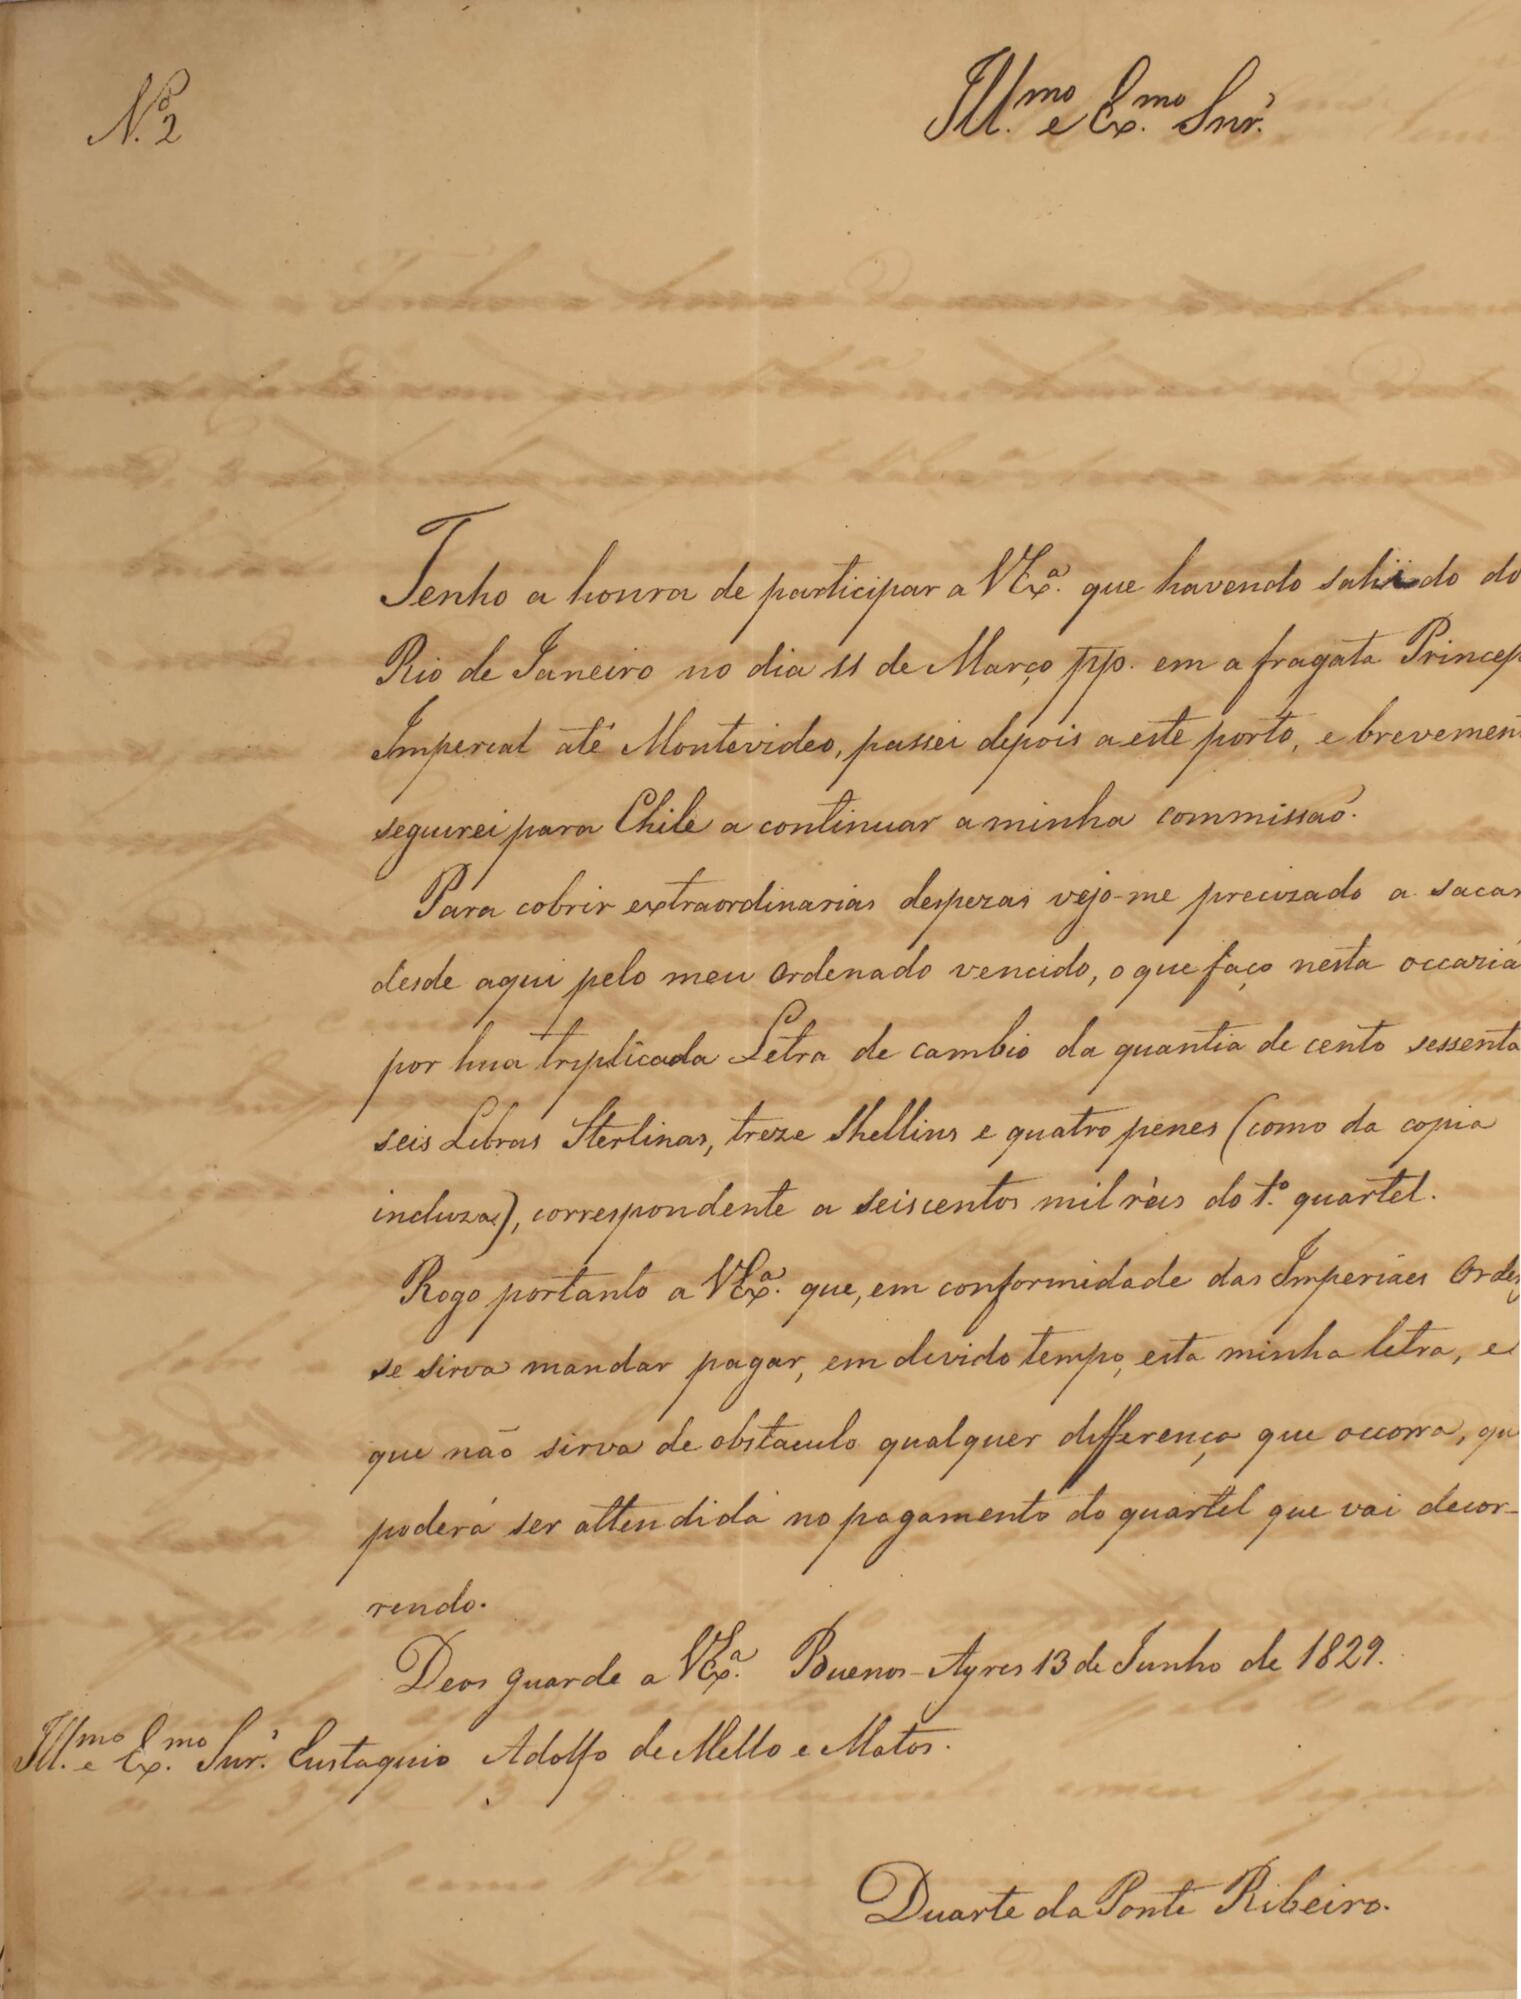 N.º 2
Ill.mo e Ex.mo Snr.
Tenho a honra de participar a V Ex.ª que havendo sahido do
Rio de Janeiro no dia 11 de Março pp. em a fragata Princep
Imperial até Montevideo, passei depois a este porto, e brevemen
seguirei para Chile a continuar a minha commissaõ.
Para cobrir extraordinarias despezas vejo-me precizado a sacar
desde aqui pelo meu Ordenado vencido, o que faço nesta occaziã
por hua triplicada Letra de cambio da quantia de cento sessenta
seis Libras Sterlinas, treze Shellins e quatro penes (como da copia
incluza), correspondente a seiscentos mil réis do 1.º quartel.
Rogo portanto a V Ex.ª que, em conformidade das Imperiaes Orde
se sirva mandar pagar, em devido tempo, esta minha letra, e
que não sirva de obstaculo qualquer differença que occorra, qu
poderá ser attendida no pagamento do quartel que vai decor-
rendo.
Deos guarde a V Ex.ª Buenos-Ayres 13 de Junho de 1829.
Ill.mo e Ex.mo Snr. Eustaquio Adolfo de Mello e Matos.
Duarte da Ponte Ribeiro.